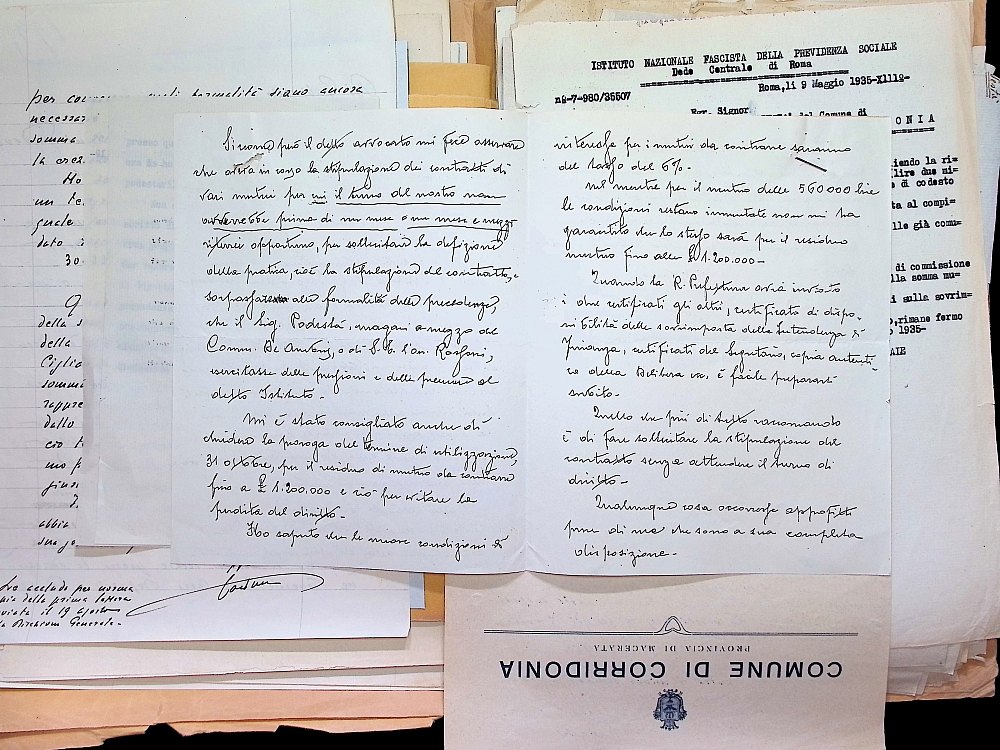 per
necessar
somma
la crea
Ho
un te
quale
dato
30
della s
della
Ciglio
somm
rappre
dallo
cio t
uno p
giusi
abbia
suo
accludo per norma
della prima lettera
inviata il 19 agosto
Direzione Generale.-
ISTITUTO NAZIONALE FASCISTA DELLA PREVIDENZA SOCIALE
Dede Centrale di Roma
Roma,li 9 Maggio 1935-XIIIº-
nº-7-980/35507
Signor
del Comune di
ONIA
iendo la ri=
lire due mi=
e di codesto
ta al compi=
lle già comu=
di commissione
lla somma mu=
i sulla sovrim=
,rimane fermo
1935-
AIE
Siccome però il detto avvocato mi fece osservare
che aveva in corso la stipulazione dei contratti di
vari mutui per cui il turno del nostro non
avverrebbe prima di un mese o un mese e mezzo
riterrei opportuno, per sollecitare la definizione
della pratica, cioè la stipulazione del contratto, e
sorpassare alle formalità della precedenza,
che il Sig. Podestà, magari a mezzo del
Comm. De Antoni, o di S. E. l'on.
esercitasse delle pressioni e delle premure al
detto Istituto.-
Mi è stato consigliato anche di
chiedere la proroga del termine di utilizzazione,
31 ottobre, per il residuo di mutuo da contrarre
fino a £ 1.200.000 e ciò per evitare la
perdita del diritto.-
Ho saputo che le nuove condizioni di
interesse per i mutui da contrarre saranno
del tasso del 6%.-
Nel mentre per il mutuo delle 560.000 lire
le condizioni restano immutate non mi ha
garantito che lo stesso sarà per il residuo
mutuo fino alle £ 1.200.000-
Quando la R. Prefettura avrà inviato
i due certificati gli altri, certificato di dispo-
nibilità delle sovrimposte della Intendenza di
Finanza, certificati del Segretario, copia autenti-
ca della Delibera ecc. è facile prepararli
subito.-
Quello che più di tutto raccomando
è di fare sollecitare la stipulazione del
contratto senza attendere il turno di
diritto.-
Qualunque cosa occorresse approfitti
pure di me che sono a sua completa
disposizione.-
COMUNE DI CORRIDONIA
PROVINCIA DI MACERATA